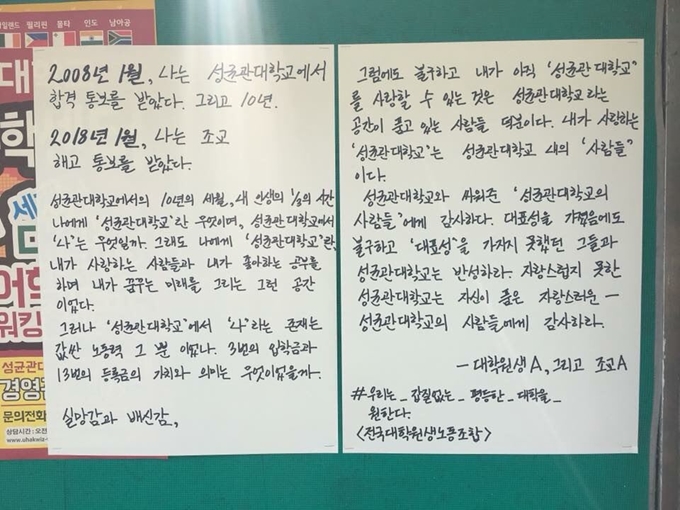 필리핀 몰타 인도 남아공
대
학
세
어학
워킹
성균관대
경영관
문의전화
상담시간 : 오전
www.uhakwiz
2008년 1월, 나는 성균관대학교에서
합격 통보를 받았다. 그리고 10년.
2018년 1월, 나는 조교
해고 통보를 받았다.
성균관대학교에서의 10년의 세월, 내 인생의 1/3의 시간
나에게 '성균관대학교'란 무엇이며, 성균관대학교에서
'나'는 무엇일까. 그래도 나에게 '성균관대학교'란,
내가 사랑하는 사람들과 내가 좋아하는 공부를
하며 내가 꿈꾸는 미래를 그리는 그런 공간
이었다.
그러나 '성균관대학교'에서 '나'라는 존재는
값싼 노동력 그 뿐이었나. 3번의 입학금과
13번의 등록금의 가치와 의미는 무엇이었을까.
실망감과 배신감,
그럼에도 불구하고 내가 아직 '성균관대학교'
를 사랑할 수 있는 것은 성균관대학교라는
공간이 품고 있는 사람들 덕분이다. 내가 사랑하는
'성균관대학교'는 성균관대학교 내의 '사람들'
이다.
성균관대학교와 싸워준 '성균관대학교의
사람들'에게 감사하다. 대표성을 가졌음에도
불구하고 '대표성'을 가지지 못했던 그들과
성균관대학교는 반성하라. 자랑스럽지 못한
성균관대학교는 자신이 품은 자랑스러운 —
성균관대학교의 사람들에게 감사하라.
— 대학원생 A, 그리고 조교 A
#우리는_갑질없는_평등한_대학을_
원한다.
<전국대학원생노동조합>